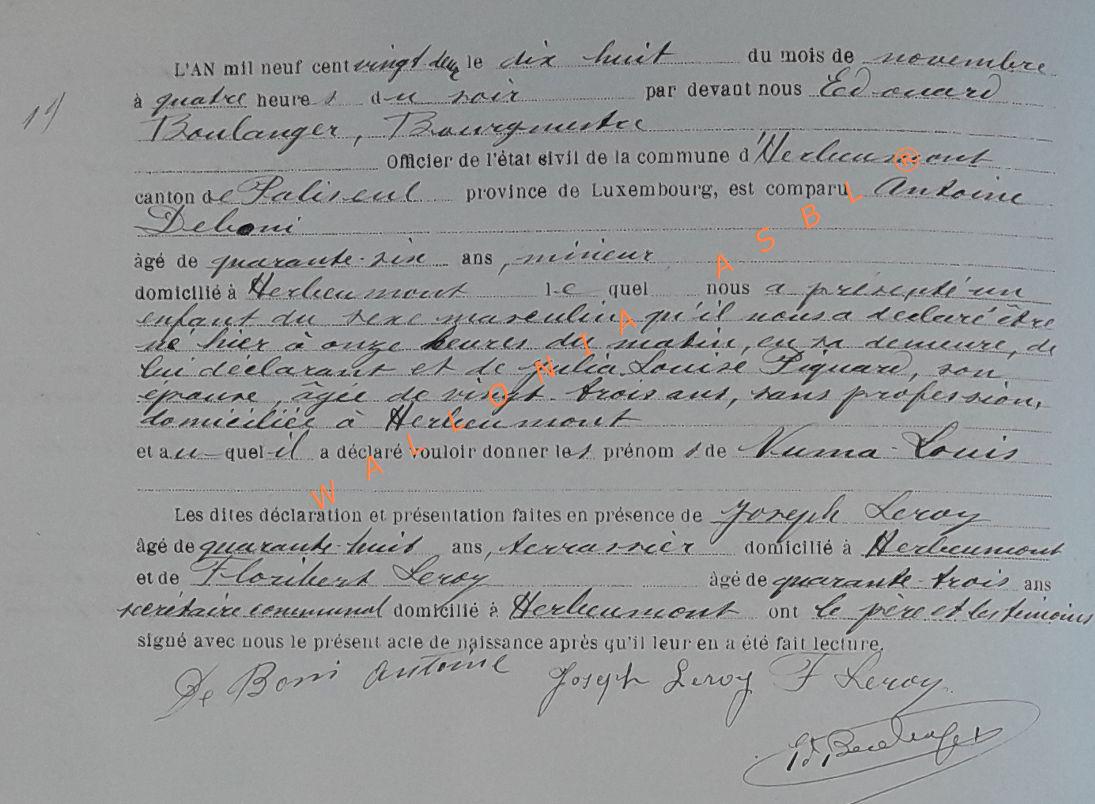 L'AN mil neuf cent vingt deux le dix huit du mois de novembre
à quatre heures du soir par devant nous Edouard
Boulanger, Bourgmestre
Officier de l'état sivil de la commune d'Herbeumont
canton de Paliseul province de Luxembourg, est comparu Antoine
Deboni
âgé de quarante-six ans, mineur
domicilié à Herbeumont le quel nous a présenté un
enfant du sexe masculin qu'il nous a déclaré être
né hier à onze heures du matin, en sa demeure, de
lui déclarant et de Julia Louise Piquard, son
épouse, âgée de vingt-trois ans, sans profession,
domiciliée à Herbeumont
et au-quel-il a déclaré vouloir donner les prénoms de Numa-Louis
Les dites déclaration et présentation faites en présence de Joseph Leroy
âgé de quarante-huit ans, terrassier domicilié à Herbeumont
et de Floribert Leroy âgé de quarante-trois ans
secrétaire communal domicilié à Herbeumont ont le père et les témoins
signé avec nous le présent acte de naissance après qu'il leur en a été fait lecture.
De Boni Antoine Joseph Leroy F Leroy
Ed. Boulanger
WALLONIA ASBL ®